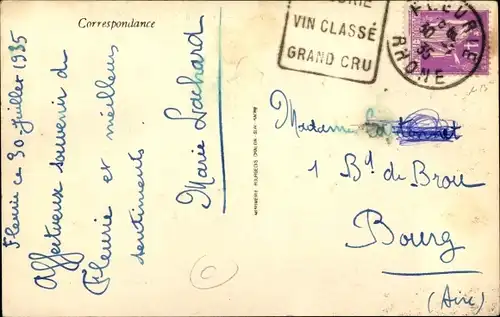 Correspondance
Fleurie ce 30 Juillet 1935
Affectueux souvenir de
Fleurie et meilleurs
sentiments
Marie Lachard
VIN CLASSÉ
GRAND CRU
FLEURIE
RHONE
Madame
1 Bd de Brou
Bourg
(Ain)